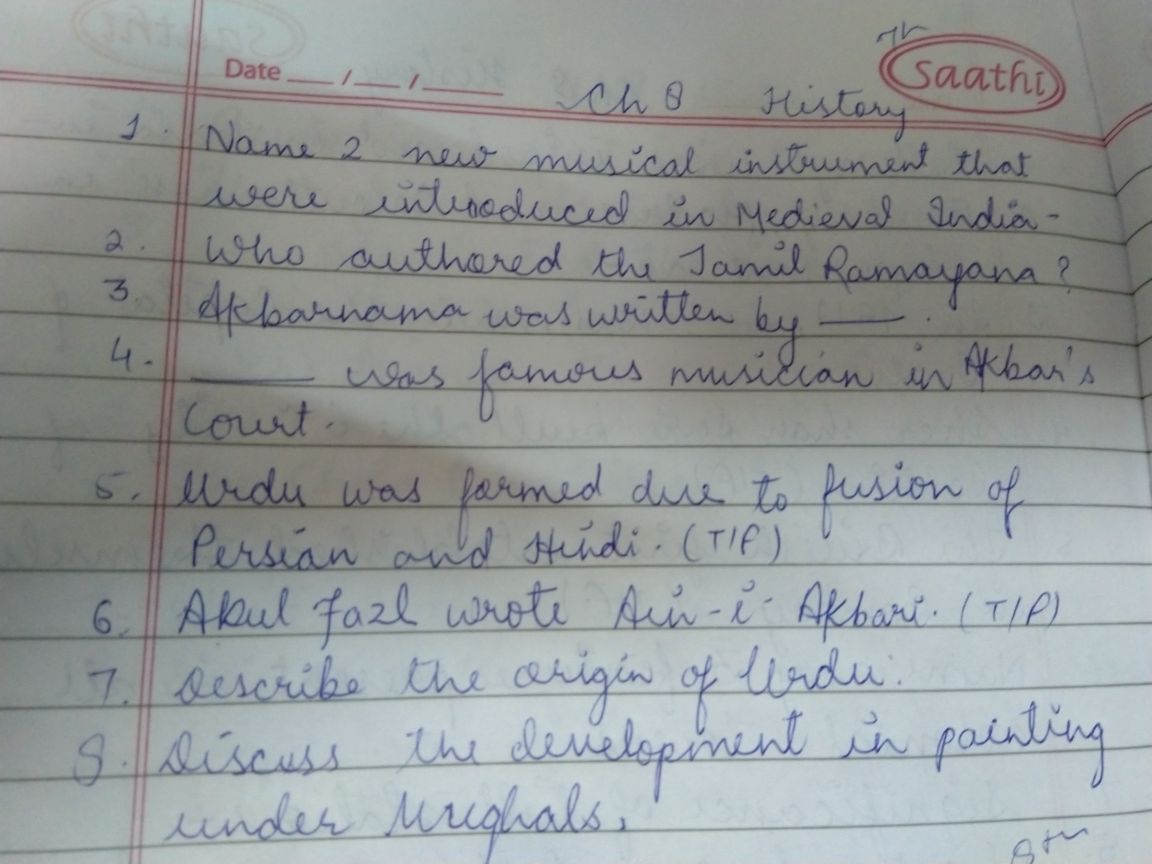 Saathi
Date __/__/____
Ch 8 History
1. Name 2 new musical instrument that
were introduced in Medieval India-
2. Who authored the Tamil Ramayana?
3 Akbarnama was written by ____.
4. ____ was famous musician in Akbar's
Court.
5. Urdu was formed due to fusion of
Persian and Hindi. (T/F)
6. Abul Fazl wrote Ain-i-Akbari. (T/F)
7. Describe the origin of Urdu.
8. Discuss the development in painting
under Mughals.